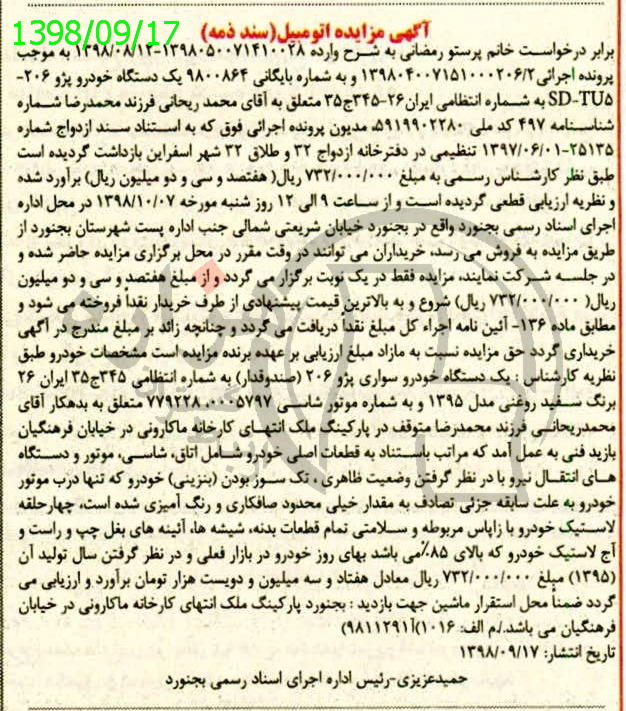 1398/09/17
آگهی مزایده اتومبیل(سند ذمه)
برابر درخواست خانم پرستو رمضانی به شرح وارده ۱۳۹۸۰۵۰۰۷۱۴۱۰۰۲۸-۱۳۹۸/۰۸/۱۲ به موجب
پرونده اجرائی ۱۳۹۸۰۴۰۰۷۱۵۱۰۰۰۲۰۶/۲ و به شماره بایگانی ۹۸۰۰۸۶۴ یک دستگاه خودرو پژو ۲۰۶-
SD-TU۵ به شماره انتظامی ایران۲۶-۳۴۵ج۳۵ متعلق به آقای محمد ریحانی فرزند محمدرضا شماره
شناسنامه ۴۹۷ کد ملی ۵۹۱۹۹۰۲۲۸۰، مدیون پرونده اجرائی فوق که به استناد سند ازدواج شماره
۲۵۱۳۵-۱۳۹۷/۰۶/۰۱ تنظیمی در دفترخانه ازدواج ۳۲ و طلاق ۳۲ شهر اسفراین بازداشت گردیده است
طبق نظر کارشناس رسمی به مبلغ ۷۳۲/۰۰۰/۰۰۰ ریال( هفتصد و سی و دو میلیون ریال) برآورد شده
و نظریه ارزیابی قطعی گردیده است و از ساعت ۹ الی ۱۲ روز شنبه مورخه ۱۳۹۸/۱۰/۰۷ در محل اداره
اجرای اسناد رسمی بجنورد واقع در بجنورد خیابان شریعتی شمالی جنب اداره پست شهرستان بجنورد از
طریق مزایده به فروش می رسد، خریداران می توانند در وقت مقرر در محل برگزاری مزایده حاضر شده و
در جلسه شرکت نمایند، مزایده فقط در یک نوبت برگزار می گردد و از مبلغ هفتصد و سی و دو میلیون
ریال( ۷۳۲/۰۰۰/۰۰۰ ریال) شروع و به بالاترین قیمت پیشنهادی از طرف خریدار نقداً فروخته می شود و
مطابق ماده ۱۳۶- آئین نامه اجراء کل مبلغ نقداً دریافت می گردد و چنانچه زائد بر مبلغ مندرج در آگهی
خریداری گردد حق مزایده نسبت به مازاد مبلغ ارزیابی بر عهده برنده مزایده است مشخصات خودرو طبق
نظریه کارشناس : یک دستگاه خودرو سواری پژو ۲۰۶ (صندوقدار) به شماره انتظامی ۳۴۵ج۳۵ ایران ۲۶
برنگ سفید روغنی مدل ۱۳۹۵ و به شماره موتور شاسی ۷۷۹۲۲۸،۰۰۰۵۷۹۷ متعلق به بدهکار آقای
محمدریحانی فرزند محمدرضا متوقف در پارکینگ ملک انتهای کارخانه ماکارونی در خیابان فرهنگیان
بازید فنی به عمل آمد که مراتب باستناد به قطعات اصلی خودرو شامل اتاق، شاسی، موتور و دستگاه
های انتقال نیرو با در نظر گرفتن وضعیت ظاهری ، تک سوز بودن (بنزینی) خودرو که تنها درب موتور
خودرو به علت سابقه جزئی تصادف به مقدار خیلی محدود صافکاری و رنگ آمیزی شده است، چهارحلقه
لاستیک خودرو با زاپاس مربوطه و سلامتی تمام قطعات بدنه، شیشه ها، آئینه های بغل چپ و راست و
آج لاستیک خودرو که بالای ۸۵٪می باشد بهای روز خودرو در بازار فعلی و در نظر گرفتن سال تولید آن
(۱۳۹۵) مبلغ ۷۳۲/۰۰۰/۰۰۰ ریال معادل هفتاد و سه میلیون و دویست هزار تومان برآورد و ارزیابی می
گردد ضمناً محل استقرار ماشین جهت بازدید : بجنورد پارکینگ ملک انتهای کارخانه ماکارونی در خیابان
فرهنگیان می باشد./م الف: ۱۰۱۶)آ۹۸۱۱۲۹۱)
تاریخ انتشار: ۱۳۹۸/۰۹/۱۷
حمیدعزیزی-رئیس اداره اجرای اسناد رسمی بجنورد